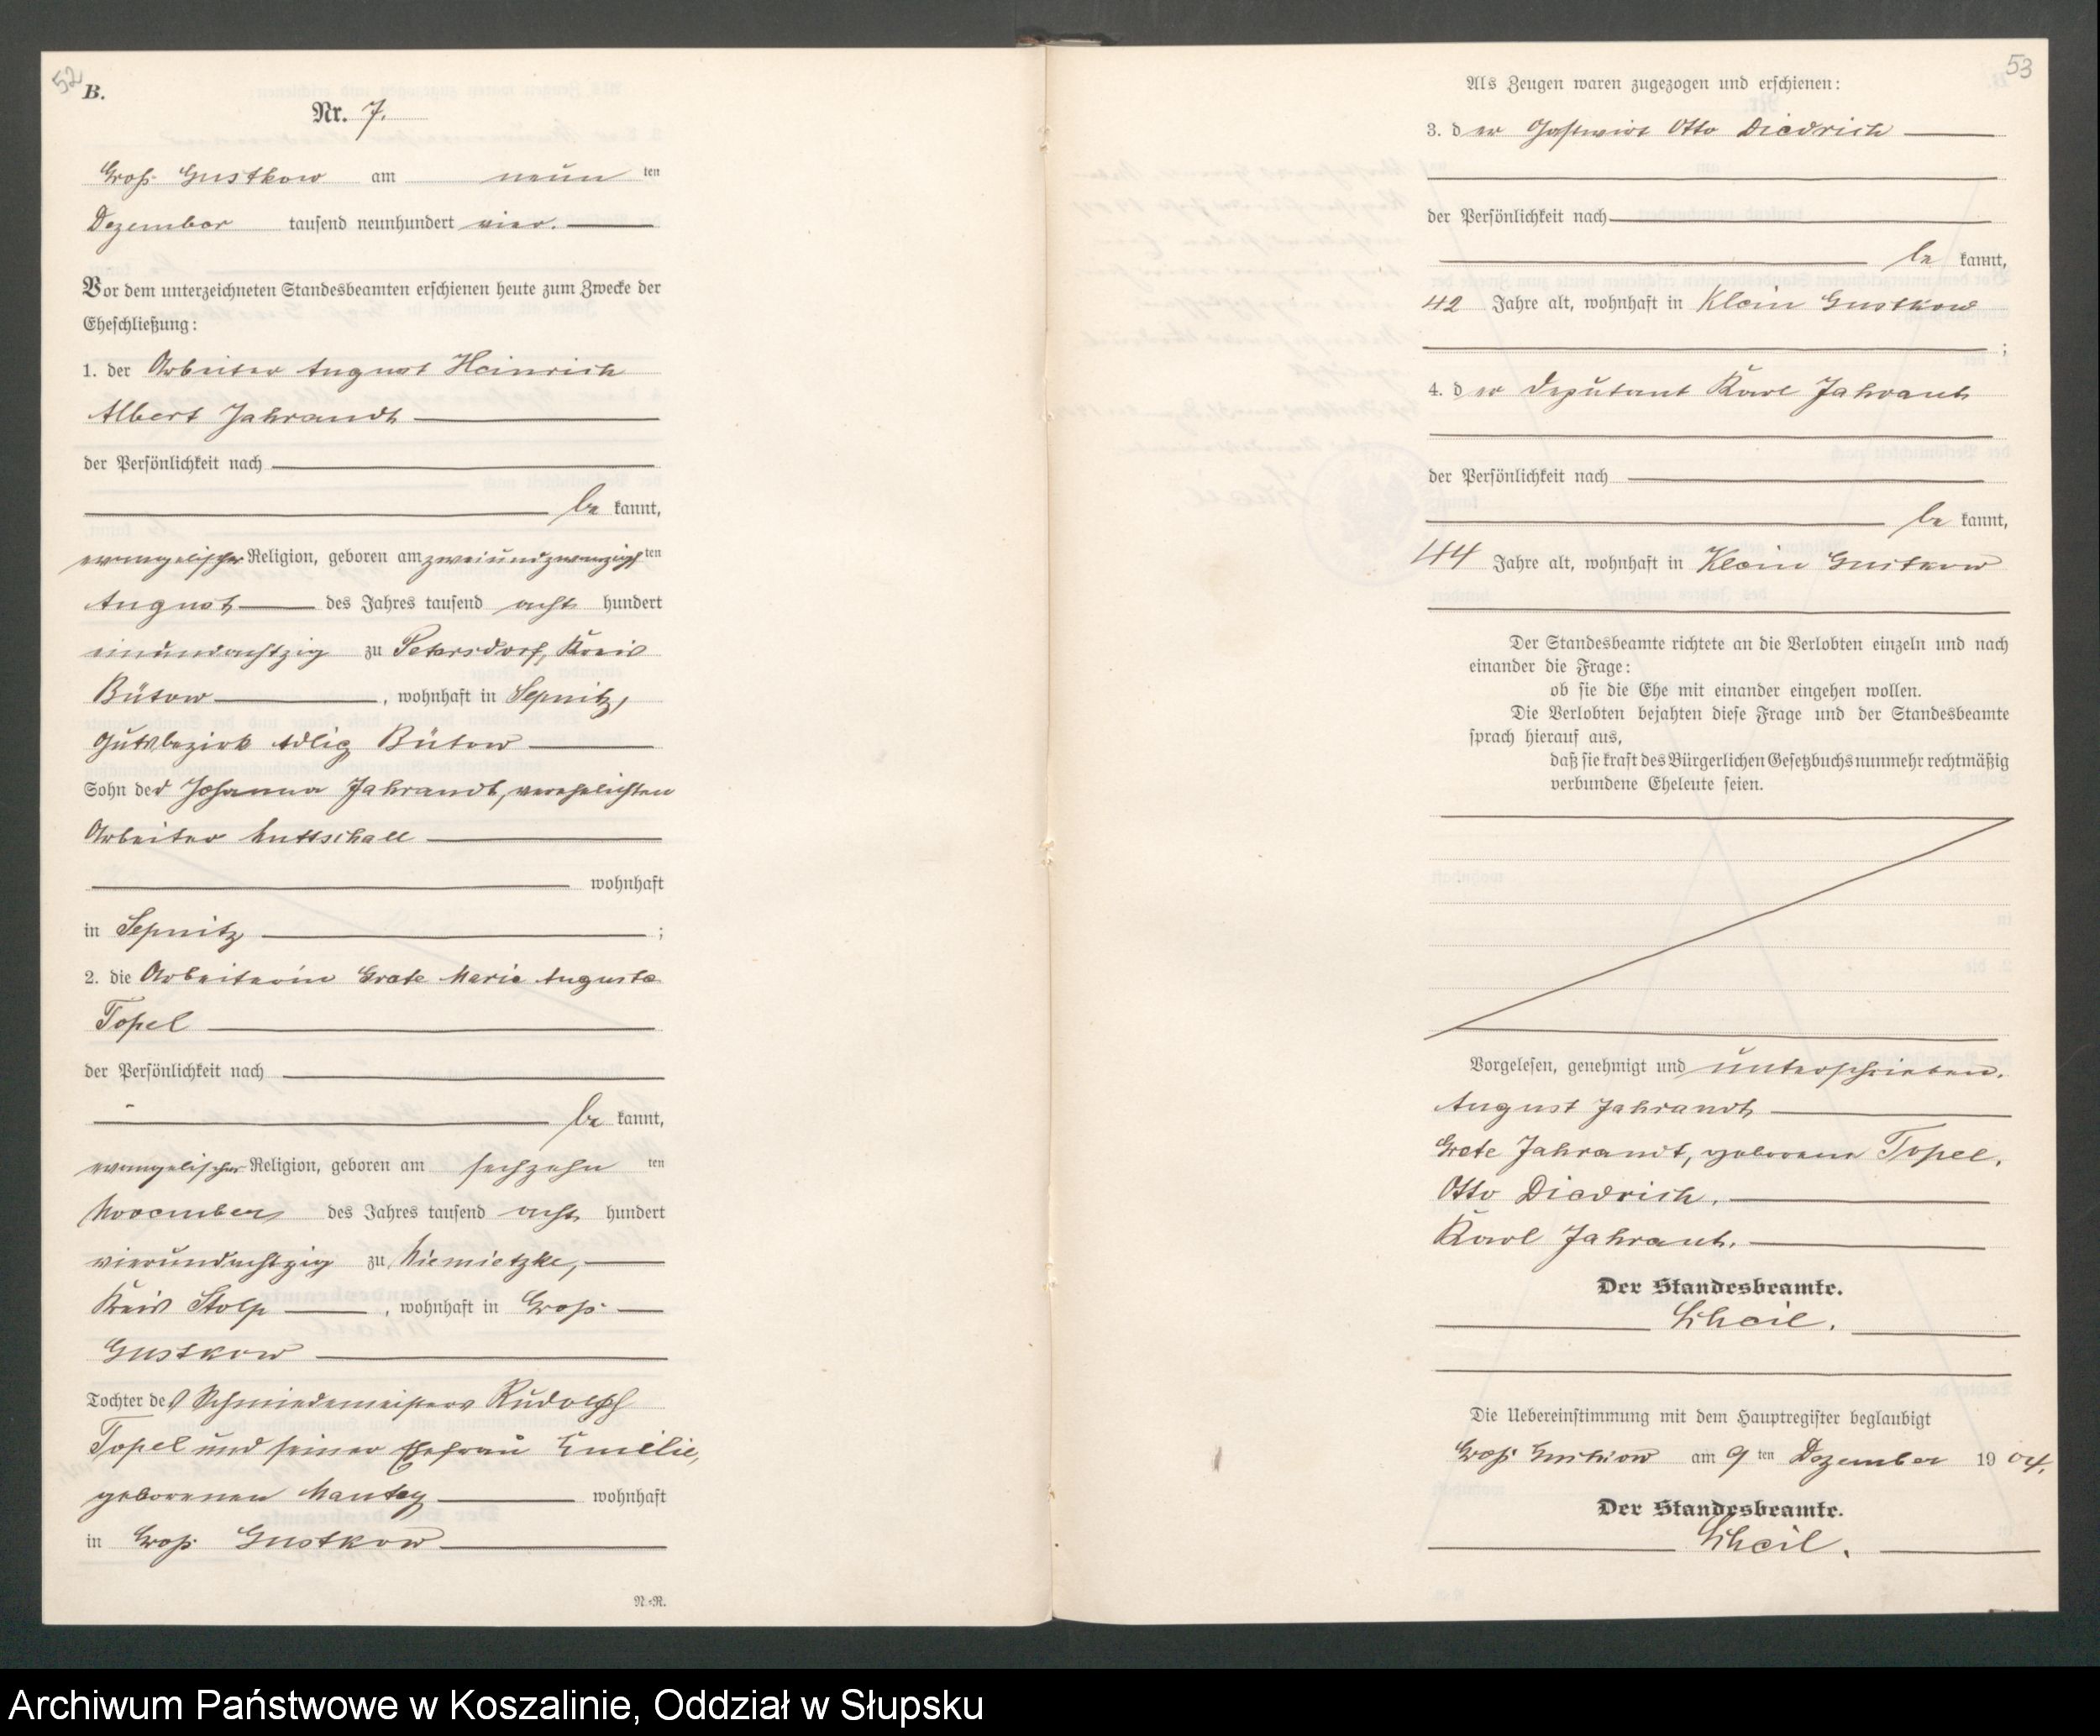 52
B.
Nr. 7.
Groß Gustkow am neun ten
Dezember tausend neunhundert vier.
Vor dem unterzeichneten Standesbeamten erschienen heute zum Zwecke der
Eheschließung:
1. der Arbeiter August Heinrich
Albert Jahrandt
der Persönlichkeit nach
be kannt,
evangelischer Religion, geboren am zweiundzwanzigsten
August des Jahres tausend acht hundert
einundachtzig zu Petersdorf, Kreis
Bütow, wohnhaft in Sepnitz,
Gutsbezirk Adlig Bütow
Sohn der Johanna Jahrandt, verehelichten
Arbeiter
wohnhaft
in Sepnitz ;
2. die Arbeiterin Grete Marie Auguste
Topel
der Persönlichkeit nach
be kannt,
evangelischer Religion, geboren am sechzehn ten
November des Jahres tausend acht hundert
vierundachtzig zu Niemietzke,
Kreis Stolp, wohnhaft in Groß
Gustkow
Tochter des Schmiedemeisters Rudolph
Topel und seiner Ehefrau Emilie,
geborenen Mantey wohnhaft
in Groß Gustkow
N.-R.
53
Als Zeugen waren zugezogen und erschienen:
3. der Gastwirt Otto Diedrich
der Persönlichkeit nach
be kannt,
42 Jahre alt, wohnhaft in Klein Gustkow
;
4. der Deputant Karl Jahrant
der Persönlichkeit nach
be kannt,
44 Jahre alt, wohnhaft in Klein Gustkow
Der Standesbeamte richtete an die Verlobten einzeln und nach
einander die Frage:
ob sie die Ehe mit einander eingehen wollen.
Die Verlobten bejahten diese Frage und der Standesbeamte
sprach hierauf aus,
daß sie kraft des Bürgerlichen Gesetzbuchs nunmehr rechtmäßig
verbundene Eheleute seien.
Vorgelesen, genehmigt und unterschrieben.
August Jahrandt
Grete Jahrandt, geborene Topel.
Otto Diedrich.
Karl Jahrant.
Der Standesbeamte.
Scheil.
Die Uebereinstimmung mit dem Hauptregister beglaubigt
Groß Gustkow am 9 ten Dezember 19 04.
Der Standesbeamte.
Scheil.
Archiwum Państwowe w Koszalinie, Oddział w Słupsku